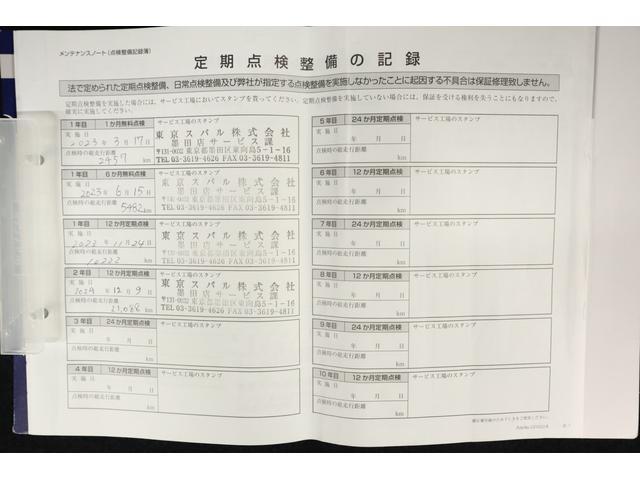 メンテナンスノート(点検整備記録簿)
定期点検整備の記録
法で定められた定期点検整備、日常点検整備及び弊社が指定する点検整備を実施しなかったことに起因する不具合は保証修理致しません。
定期点検整備を実施した場合には、サービス工場においてスタンプを貰ってください。定期点検整備を実施していない場合には、保証を受ける権利を失うことにもなりますので、
確実に実施してください。
1年目 1か月無料点検 サービス工場のスタンプ
実施日
2023年3月17日
点検時の総走行距離
2457 km
東京スバル株式会社
墨田店サービス課
〒131-0032 東京都墨田区東向島5-1-16
TEL 03-3619-4626 FAX 03-3619-4811
1年目 6か月無料点検 サービス工場のスタンプ
実施日
2023年6月15日
点検時の総走行距離
5482 km
東京スバル株式会社
墨田店サービス課
〒131-0032 東京都墨田区東向島5-1-16
TEL 03-3619-4626 FAX 03-3619-4811
1年目 12か月定期点検 サービス工場のスタンプ
実施日
2023年11月24日
点検時の総走行距離
km
東京スバル株式会社
墨田店サービス課
〒131-0032 東京都墨田区東向島5-1-16
TEL 03-3619-4626 FAX 03-3619-4811
2年目 12か月定期点検 サービス工場のスタンプ
実施日
2024年12月9日
点検時の総走行距離
21,088 km
東京スバル株式会社
墨田店サービス課
〒131-0032 東京都墨田区東向島5-1-16
TEL 03-3619-4626 FAX 03-3619-4811
3年目 24か月定期点検 サービス工場のスタンプ
実施日
年 月 日
点検時の総走行距離
km
4年目 12か月定期点検 サービス工場のスタンプ
実施日
年 月 日
点検時の総走行距離
km
5年目 24か月定期点検 サービス工場のスタンプ
実施日
年 月 日
点検時の総走行距離
km
6年目 12か月定期点検 サービス工場のスタンプ
実施日
年 月 日
点検時の総走行距離
km
7年目 24か月定期点検 サービス工場のスタンプ
実施日
年 月 日
点検時の総走行距離
km
8年目 12か月定期点検 サービス工場のスタンプ
実施日
年 月 日
点検時の総走行距離
km
9年目 24か月定期点検 サービス工場のスタンプ
実施日
年 月 日
点検時の総走行距離
km
10年目 12か月定期点検 サービス工場のスタンプ
実施日
年 月 日
点検時の総走行距離
km